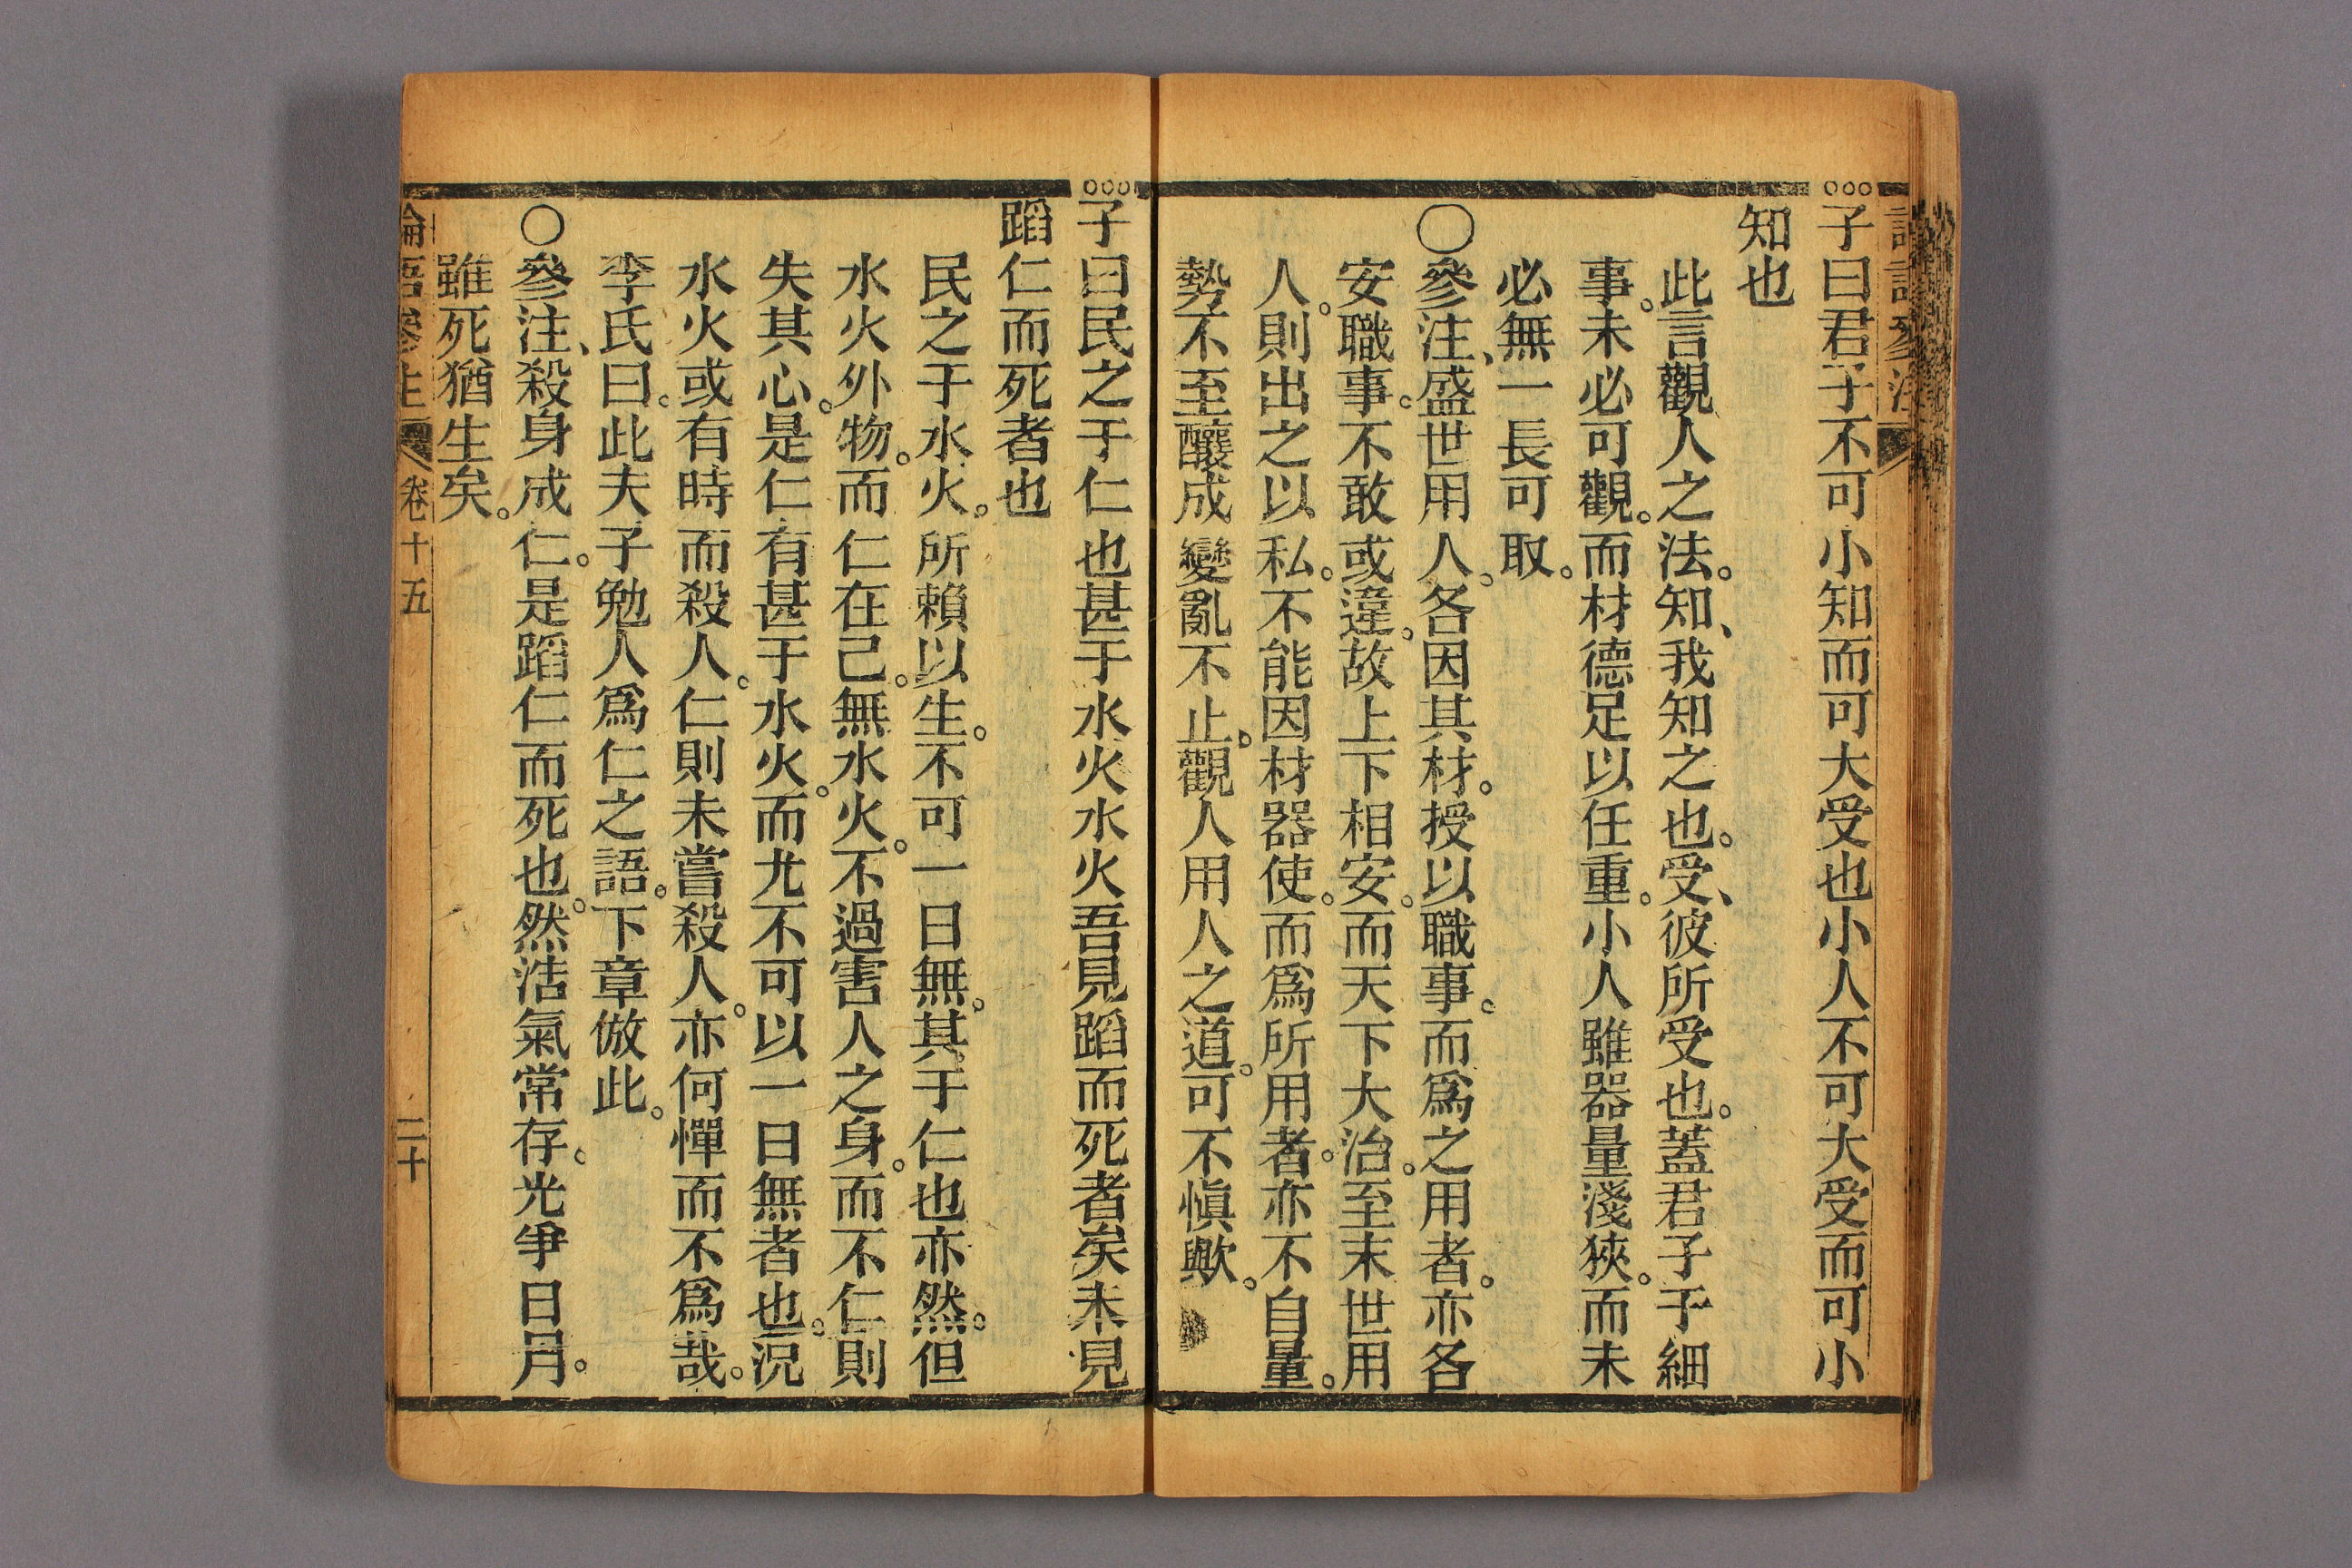 子曰君子不可小知而可大受也小人不可大受而可小
知也
此言觀人之法。知、我知之也。受、彼所受也。蓋君子于細
事。未必可觀。而材德足以任重。小人雖器量淺狹。而未
必無一長可取。
○參注、盛世用人。各因其材。授以職事。而爲之用者。亦各
安職事。不敢或違。故上下相安。而天下大治。至末世用
人。則出之以私。不能因材器使。而爲所用者。亦不自量。
勢不至釀成變亂不止。觀人用人之道。可不愼歟。
子曰民之于仁也甚于水火水火吾見蹈而死者矣未見
蹈仁而死者也
民之于水火。所賴以生。不可一日無。其于仁也亦然。但
水火外物。而仁在己。無水火。不過害人之身。而不仁則
失其心。是仁有甚于水火。而尤不可以一日無者也。況
水火或有時而殺人。仁則未嘗殺人。亦何憚而不爲哉。
李氏曰。此夫子勉人爲仁之語。下章倣此。
○參注、殺身成仁。是蹈仁而死也。然浩氣常存。光爭日月。
雖死猶生矣。
論語參注 卷十五 二十